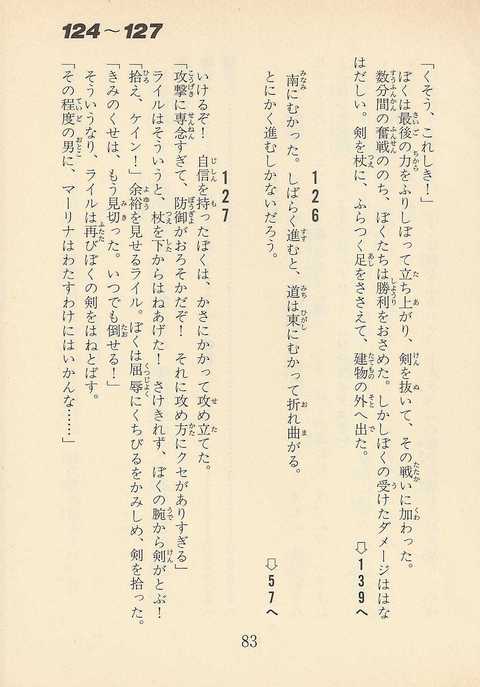 124〜127
「くそう、これしき!」
ぼくは最後の力をふりしぼって立ち上がり、剣を抜いて、その戦いに加わった。
数分間の奮戦ののち、ぼくたちは勝利をおさめた。しかしぼくの受けたダメージははな
はだしい。剣を杖に、ふらつく足をささえて、建物の外へ出た。
⇨139へ
126
南にむかった。しばらく進むと、道は東にむかって折れ曲がる。
とにかく進むしかないだろう。
⇨57へ
127
いけるぞ! 自信を持ったぼくは、かさにかかって攻め立てた。
「攻撃に専念すぎて、防御がおろそかだぞ! それに攻め方にクセがありすぎる」
ライルはそういうと、杖を下からはねあげた! さけきれず、ぼくの腕から剣がとぶ!
「拾え、ケイン!」余裕を見せるライル。ぼくは屈辱にくちびるをかみしめ、剣を拾った。
「きみのくせは、もう見切った。いつでも倒せる!」
そういうなり、ライルは再びぼくの剣をはねとばす。
「その程度の男に、マーリナはわたすわけにはいかんな……」
83